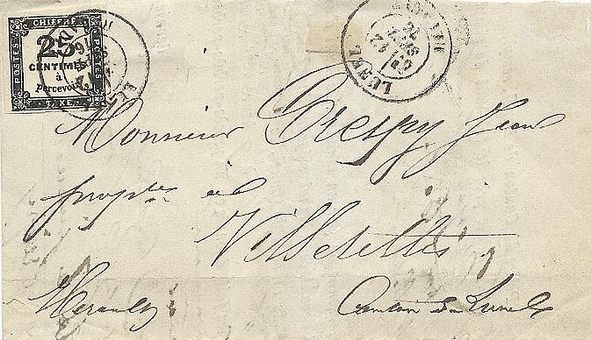 CHIFFRE
POSTES
25
CENTIMES
à
Percevoir
POSTES
TAXE
LUNEL
Monsieur Crespy Jean
propre à
Villetelles
Herault Canton de Lunel